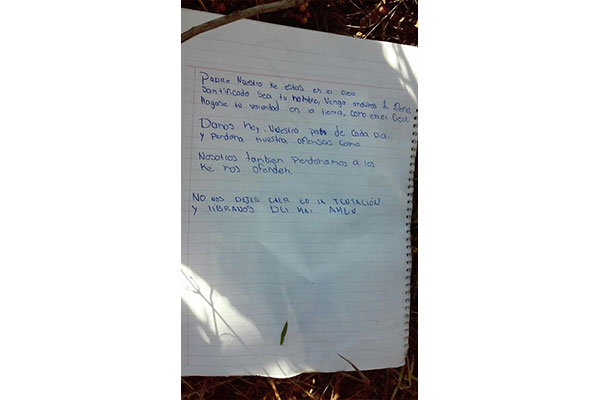 Padre Nuestro ke estas en el cielo
Santificado Sea tu nombre, Venga anosotros tu Reino
Hagase tu voluntad en la tierra, como en el Cielo,
Danos hoy, Nuestro pan de cada dia
y perdona nuestra ofensas como
Nosotros tanbien perdonamos a los
Ke nos ofenden.
NO NOS DEJES CAER EN LA TENTACIÓN
y LIBRANOS DEL MAL AMEN